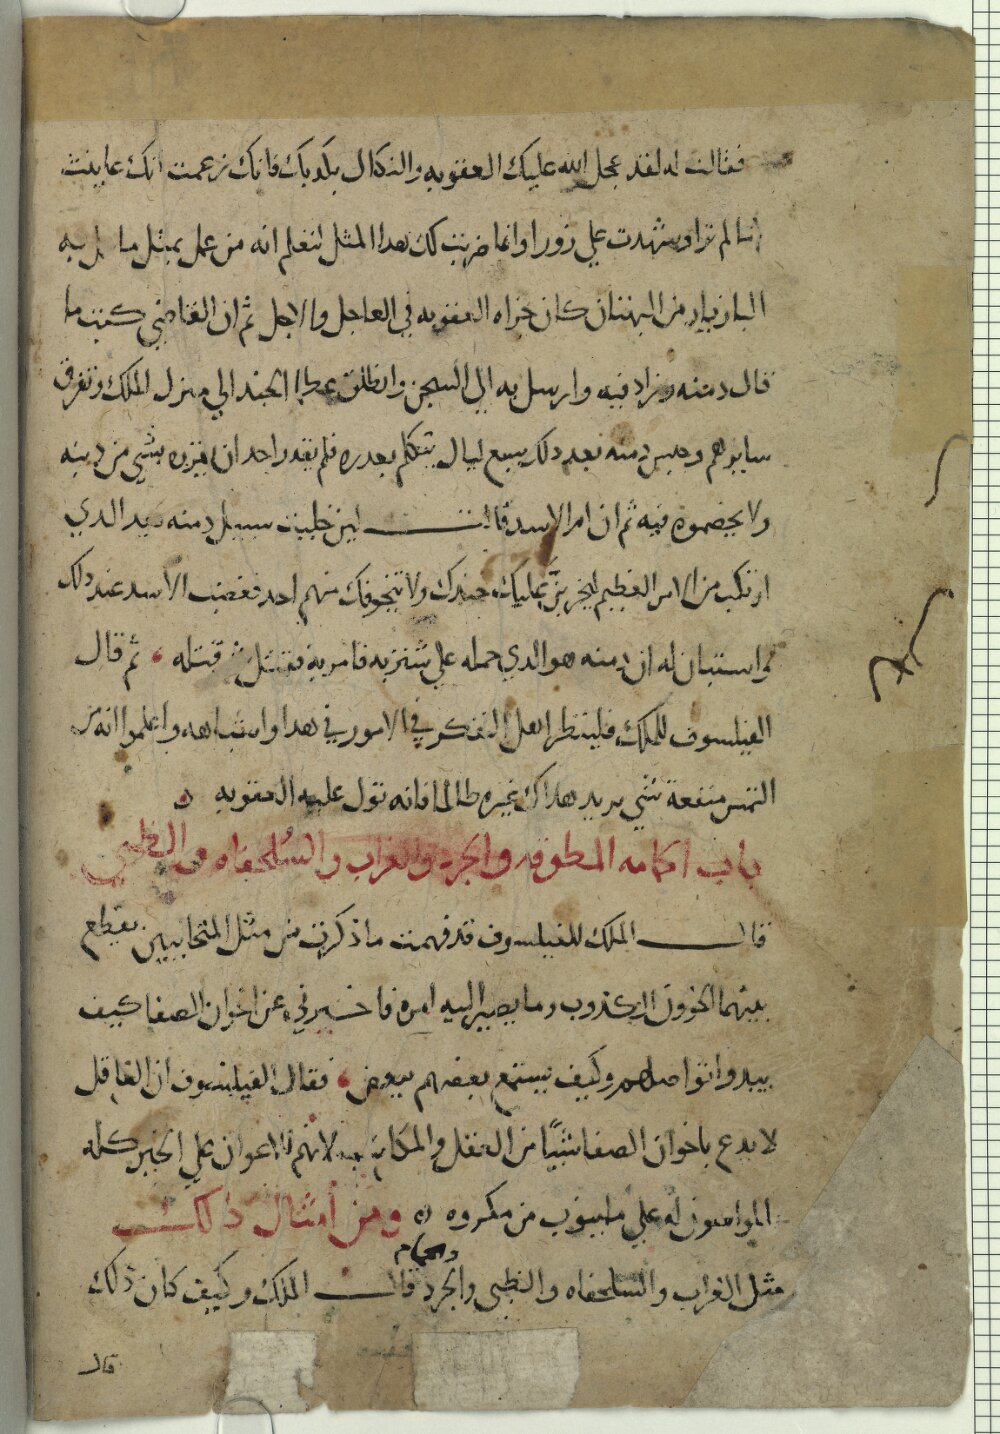 فقالت له لقد عجل الله عليك العقوبه والنكال بكدبك فانك زعمت انك عاينت
ما لم ترا وشهدت علي زورا وانما ضربت لك هدا المثل لتعلم انه من عمل بمثل ما عمل به
البازيار من البهتان كان جزاه العقوبه في العاجل والاجل ثم ان القاضي كتب ما
قال دمنه وزاد فيه وارسل به الي السجن وانطلق عظما الجند الي منزل الملك وتفرق
سايرهم وحبس دمنه بعد دلك سبع ليال يتكلم بعدره فلم يقدر احد ان يقرره بشي من دينه
ولا يخصموه فيه ثم ان ام الاسد قالت لين خليت سبيل دمنه بعد الدي
ارتكب من الامر العظيم ليجترين عليك جندك ولا يتخوفك منهم احد فغضب الاسد عند دلك
واستبان له ان دمنه هو الدي حمله علي شنزبه فامر به فقتل قتله ، ثم قال
الفيلسوف للملك فلينظر اهل التفكر في الامور في هدا واشباهه واعلموا انه من
التمس منفعة شي يريد هلاك غيره ظالما فانه تول عليه العقوبه ه
باب الحمامه المطوقه والجرد والغراب والسلحفاه والظبي
قال الملك للفيلسوف قد فهمت ما ذكرت من مثل المتحابيين يقطع
بينهما الخوون الكذوب وما يصير اليه امره فاخبرني عن اخوان الصفا كيف
يبدوا تواصلهم وكيف يستمتع بعضهم ببعض ، فقال الفيلسوف ان العاقل
لا يدع باخوان الصفا شيًا من العقل والمكاسب لانهم الاعوان علي الخير كله
المواسون له علي ما ينوب من مكروه ه ومن أمثال ذلك
والحمام
مثل الغراب والسلحفاه والظبي والجرد قال الملك وكيف كان ذلك
قال